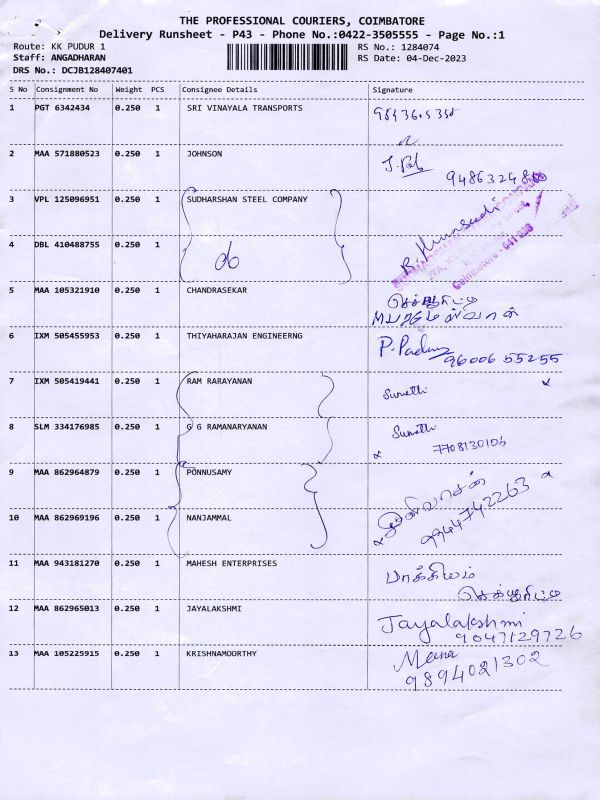 THE PROFESSIONAL COURIERS, COIMBATORE
Delivery Runsheet - P43 - Phone No.:0422-3505555 - Page No.:1
Route: KK PUDUR 1 RS No.: 1284074
Staff: ANGADHARAN RS Date: 04-Dec-2023
DRS No.: DCJB128407401
S No Consignment No Weight PCS Consignee Details Signature
1 PGT 6342434 0.250 1 SRI VINAYALA TRANSPORTS
2 MAA 571880523 0.250 1 JOHNSON
3 VPL 125096951 0.250 1 SUDHARSHAN STEEL COMPANY
4 DBL 410488755 0.250 1
Coimbatore - 641 038
5 MAA 105321910 0.250 1 CHANDRASEKAR செக்யூரிட்டி
6 IXM 505455953 0.250 1 THIYAHARAJAN ENGINEERNG P. 96006 55255
7 IXM 505419441 0.250 1 RAM RARAYANAN Sumathi
8 SLM 334176985 0.250 1 G G RAMANARYANAN Sumathi
7708130106
9 MAA 862964879 0.250 1 PONNUSAMY
10 MAA 862969196 0.250 1 NANJAMMAL 9944742263
11 MAA 943181270 0.250 1 MAHESH ENTERPRISES பாக்கியம்
செக்யூரிட்டி
12 MAA 862965013 0.250 1 JAYALAKSHMI Jayalakshmi
9047129726
13 MAA 105225915 0.250 1 KRISHNAMOORTHY Meena
9894021302